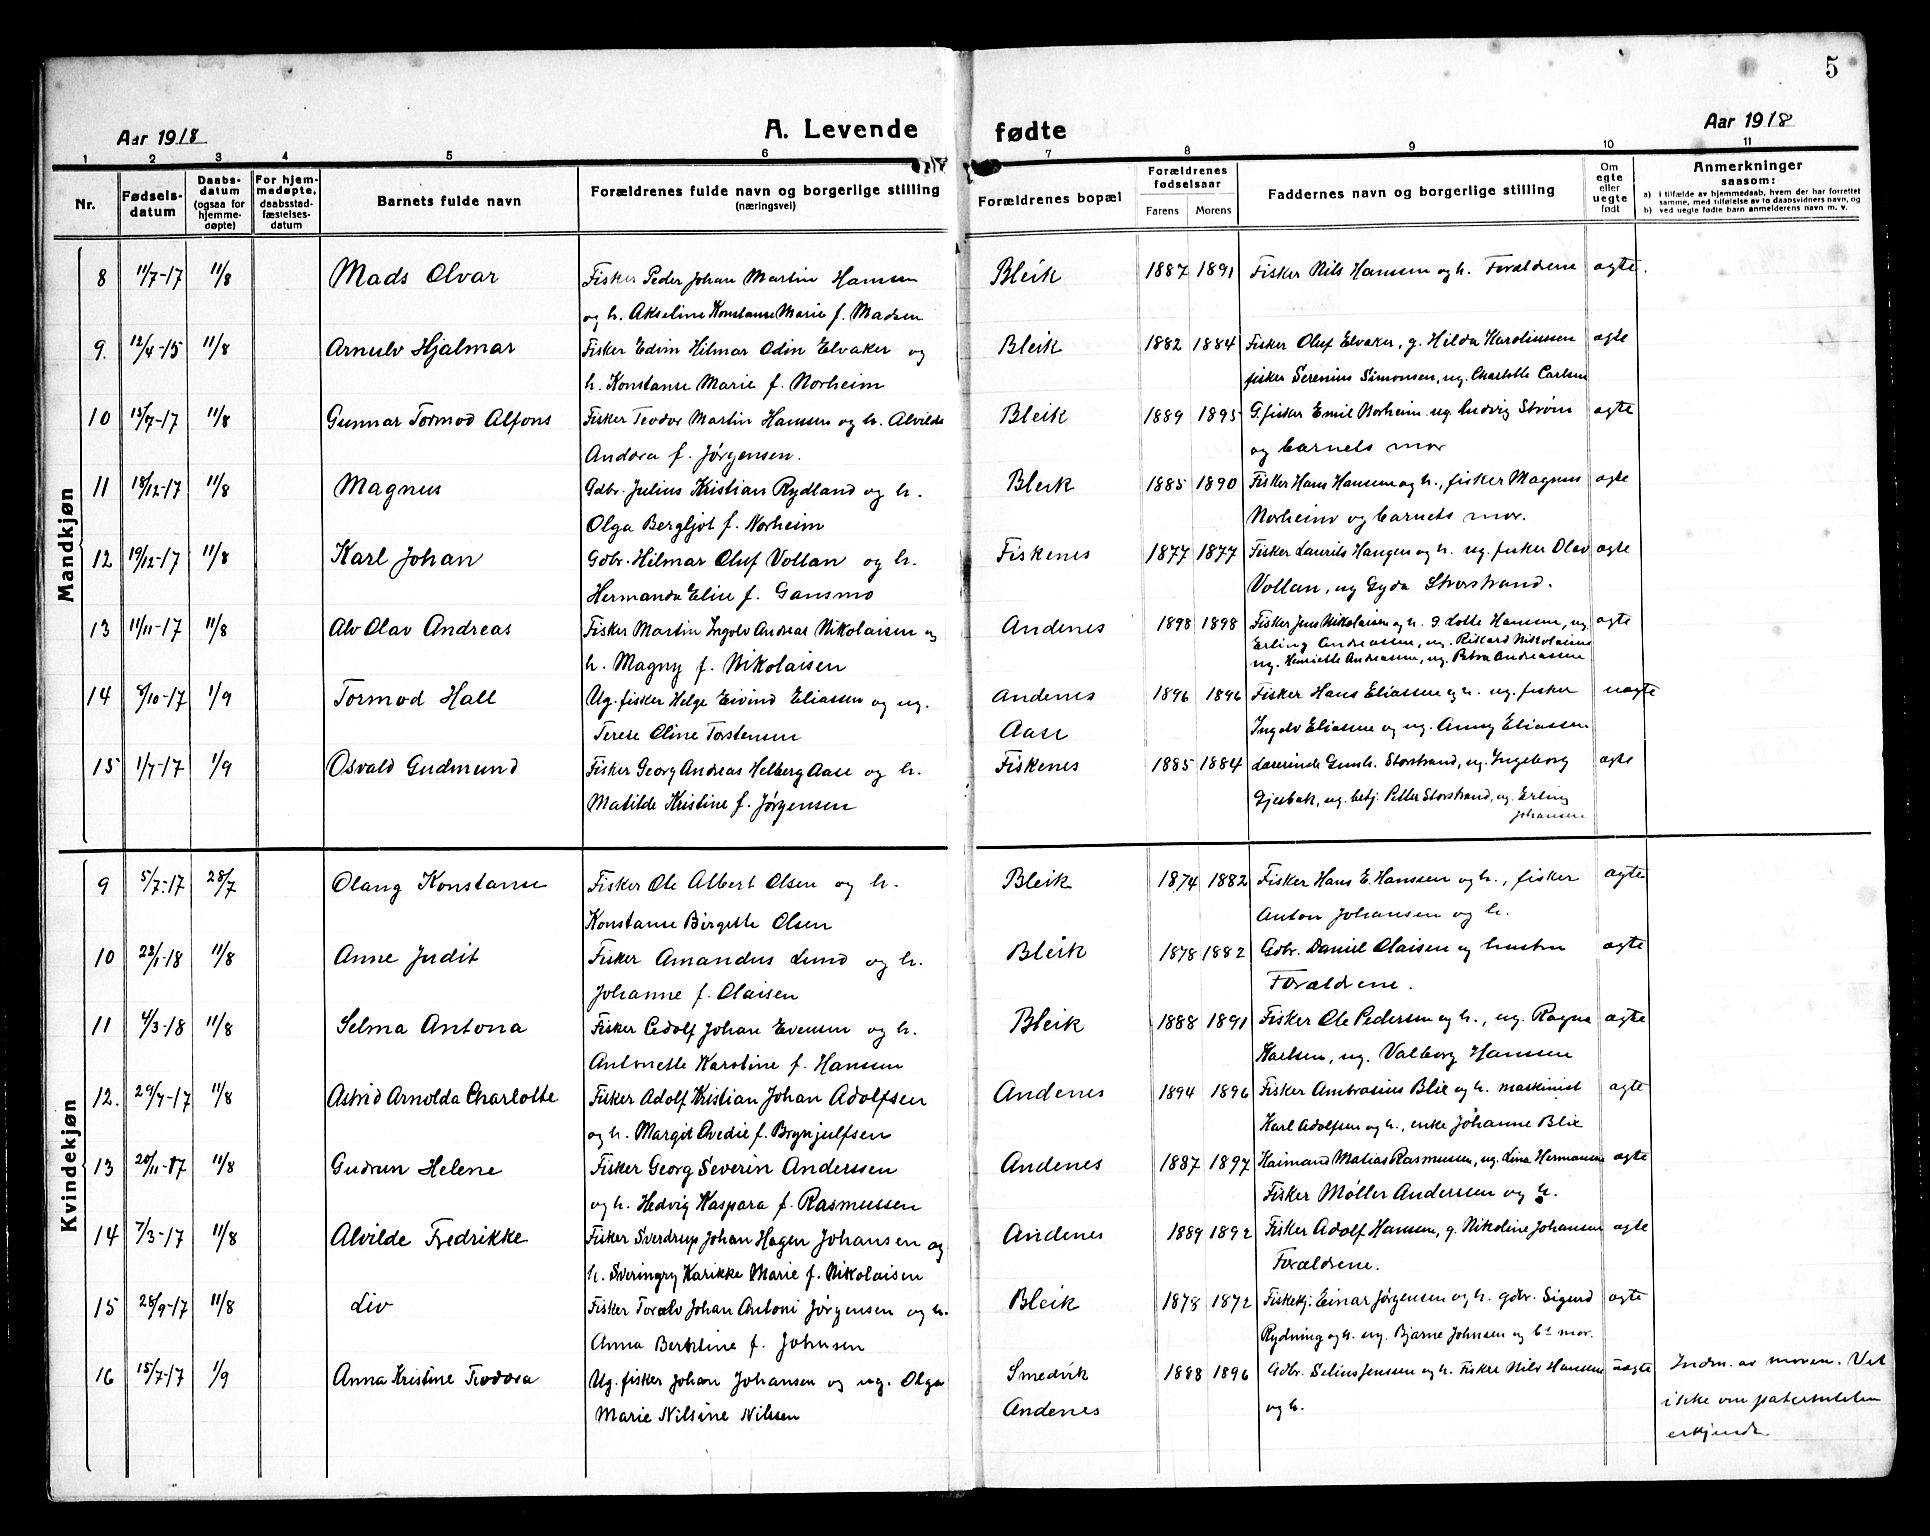 5
Aar 1918
A. Levende fødte
Aar 1918
1 2 3 4 5 6 7 8 9 10 11
Nr.
Fødsels-
datum
Daabs-
datum
(ogsaa for
hjemme-
døpte)
For hjem-
medøpte,
daabsstad-
fæstelses-
datum
Barnets fulde navn
Forældrenes fulde navn og borgerlige stilling
(næringsvei)
Forældrenes bopæl
Forældrenes
fødselsaar
Farens Morens
Faddernes navn og borgerlige stilling
Om
egte
eller
uegte
født
Anmerkninger
saasom:
a) i tilfælde av hjemmedaab, hvem der har forrettet
samme, med tilføielse av to daabsvidners navn, og
b) ved uegte fødte barn anmelderens navn m. v.
Mandkjøn
8 11/7-17 11/8 Mads Olvar Fisker Peder Johan Martin Hansen Bleik 1887 1891 Fisker Nils Hansen og h. Forældrene ægte.
og h. Akseline Konstanse Marie f. Madsen
9. 12/4-15 11/8 Arnulv Hjalmar Fisker Edvin Hilmar Odin Elvaker og Bleik 1882 1884 Fisker Oluf Elvaker, g. Hilda Karoliussen ægte
h. Konstanse Marie f. Norheim fisker Serenius Simonsen, ug. Charlotte Carlsen
10 15/7-17 11/8 Gunnar Tormod Alfons Fisker Teodor Martin Hansen og h. Alvilde Bleik 1889 1895 G. fisker Emil Norheim, ug. Ludvig Strøm ægte
Andora f. Jørgensen. og barnets mor
11 18/12-17 11/8 Magnus Gdbr. Julius Kristian Rydland og h. Bleik 1885 1890 Fisker Hans Hansen og h., fisker Magnus ægte
Olga Bergljot f. Norheim Norheim og barnets mor.
12 19/12-17 11/8 Karl Johan Gdbr. Hilmar Oluf Vollan og h. Fiskenes 1877 1877 Fisker Laurits Haugen og h. ug. fisker Olav ægte
Hermanda Elise f. Gansmo Vollan, ug Gyda Storstrand.
13 11/11-17 11/8 Alv Olav Andreas Fisker Martin Ingolv Andreas Nikolaisen og Andenes 1898 1898 Fisker Jens Nikolaisen og h. g. Lotte Hansen, ug. ægte
Erling Andreassen, ug. Rikard Nikolaisen
h. Magny f. Nikolaisen ug. Henriette Andreassen, ug. Petra Andreassen
14 8/10-17 1/9 Tormod Hall Ug. fisker Helge Eivind Eliassen og ug. Andenes 1896 1896 Fisker Hans Eliassen og h. ug. fisker uægte
Terese Oline Torstensen Aase Ingolv Eliassen og ug. Anny Eliassen
15 1/7-17 1/9 Osvald Gudmund Fisker Georg Andreas Helberg Aase og h. Fiskenes 1885 1884 Lærerinde Gunh. Storstrand, ug. Ingeborg ægte
Matilde Kristine f. Jørgensen Gjesbak, ug. betj. Petter Storstrand, ug. Erling
Johansen
Kvindekjøn
9 5/7-17 28/7 Olaug Konstanse Fisker Ole Albert Olsen og h. Bleik 1874 1882 Fisker Hans E. Hanssen og h., fisker ægte
Konstanse Birgette Olsen Anton Johansen og h.
10 28/1-18 11/8 Anne Judit Fisker Amandus Lund og h. Bleik 1878 1882 Gdbr. Daniel Olaisen og hustru ægte
Johanne f. Olaisen Forældrene.
11 4/3-18 11/8 Selma Antona Fisker Edolf Johan Evensen og h. Bleik 1888 1891 Fisker Ole Pedersen og h., ug. Ragna ægte
Antonette Karoline f. Hanssen Karlsen, ug. Valborg Hanssen
12. 29/7-17 11/8 Astrid Arnolda Charlotte Fisker Adolf Kristian Johan Adolfsen Andenes 1894 1896 Fisker Ambrosius Blix og h. maskinist ægte
og h. Margit Ovedie f. Brynjulfsen Karl Adolfsen og h., enke Johanne Blix
13 20/11-87 11/8 Gudrun Helene Fisker Georg Severin Anderssen Andenes 1887 1897 Kaimand Matias Rasmussen, ug. Lina Hermansen ægte
og h. Hedvig Kaspara f. Rasmussen Fisker Møller Anderssen og h.
14 7/3-17 11/8 Alvilde Fredrikke Fisker Sverdrup Johan Hagen Johansen og Andenes 1889 1892 Fisker Adolf Hansen, g. Nikoline Johansen ægte
h. Sveringry Karikke Marie f. Nikolaisen Forældrene.
15 28/9-17 11/8 Liv Fisker Toralv Johan Antoni Jørgensen og h. Bleik 1878 1872 Fiskekj. Einar Jørgensen og h. gdbr. Sigurd ægte
Anna Berntine f. Johnsen Rydning og h. ug. Bjarne Johnsen og bs mor.
16 15/7-17 1/9 Anna Kristine Teodora Ug. fisker Johan Johansen og ug. Olga Smedvik 1888 1896 Gdbr. Selius Jenssen og h. Fisker Nils Hansen uægte Indm. av moren. Vet
Marie Nilsine Nilssen Andenes og h. ikke om paterniteten
erkjendt.